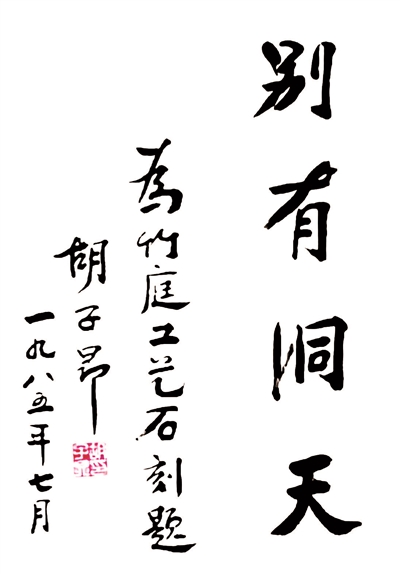 别有洞天
为竹庭工艺石刻题
胡子昂
一九八五年七月